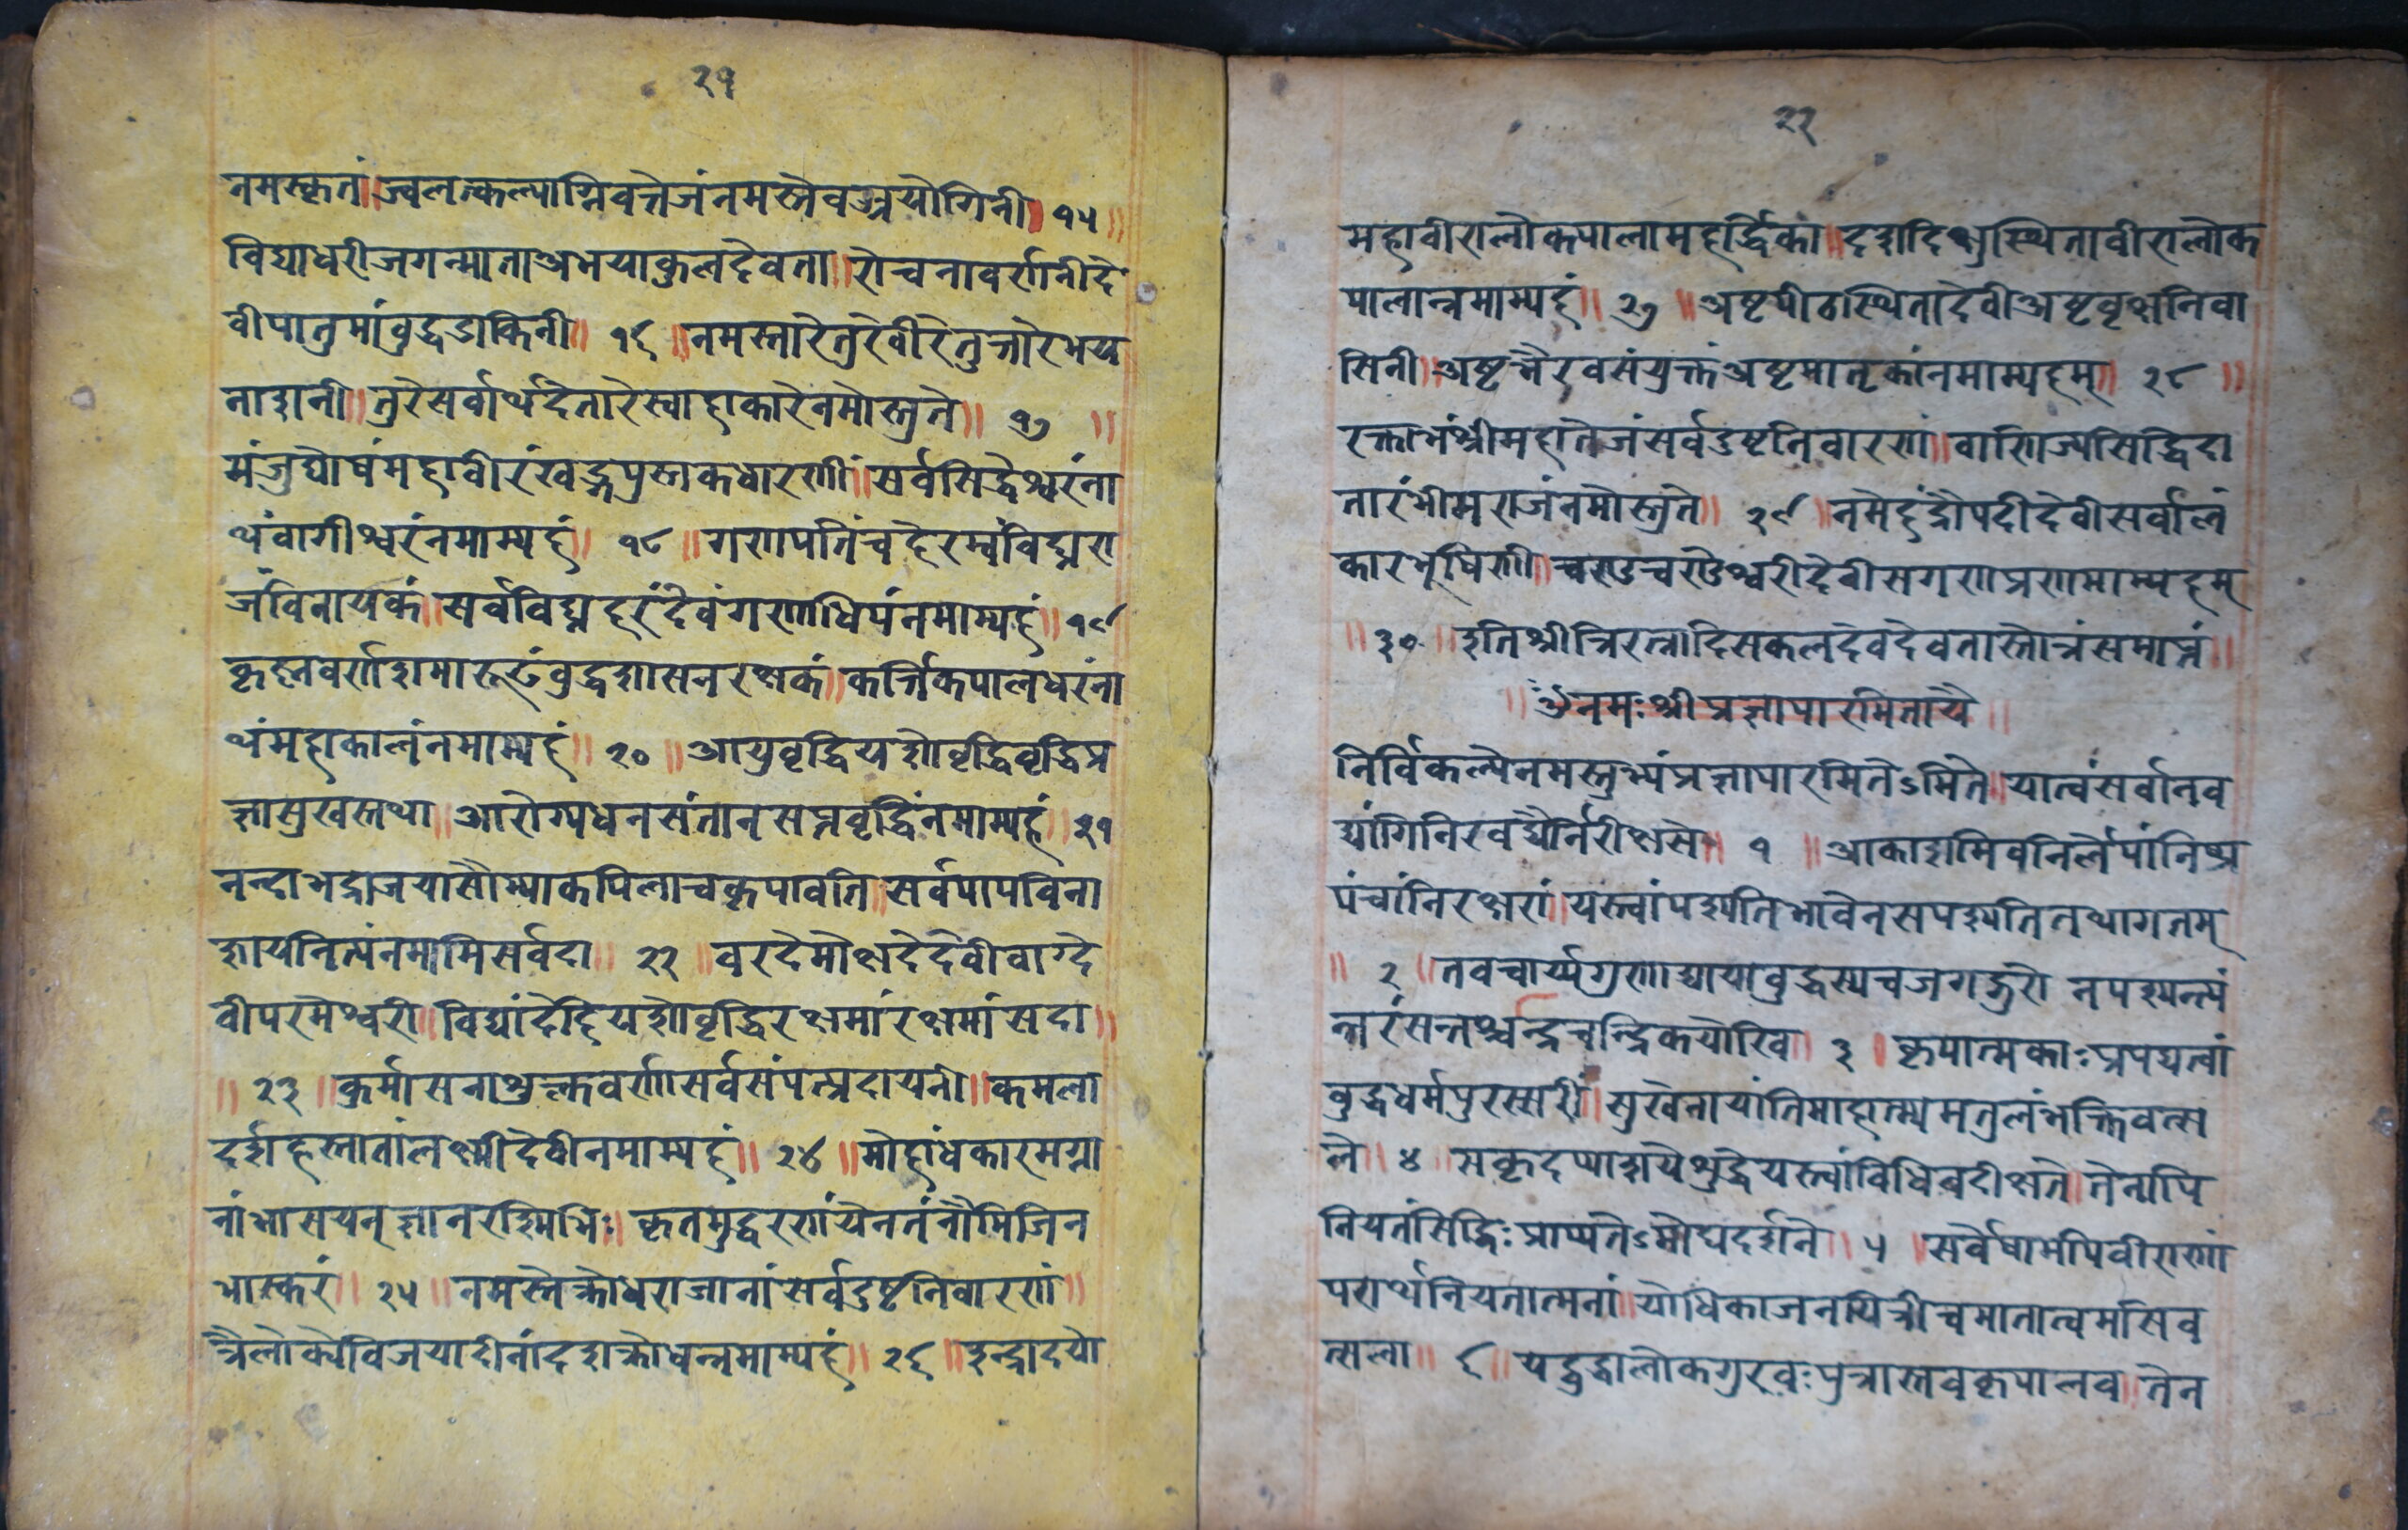 २१
नमस्कृतं॥ज्वलत्कल्पाग्निवत्तेजंनमस्तेवज्रयोगिनी॥१५॥
विद्याधरीजगन्माताअभयाकुलदेवता॥रोचनावर्णानीदे
वीपातुमांवुद्धडाकिनी॥१६॥नमस्तारेतुरेवीरेतुत्तारेभय
नाशनी॥तुरेसर्वार्थदेतारेस्वाहाकारेनमोस्तुते॥१७॥
मंजुघोषंमहावीरंखड्गपुस्तकधारणीं॥सर्वसिद्धेश्वरंना
थंवागीश्वरंनमाम्यहं॥१८॥गणपतिंचहेरम्बंविघ्नरा
जंविनायकं॥सर्वविघ्नहरंदेवंगणाधिपंनमाम्यहं॥१९
कृष्णवर्णाशमारूढंवुद्धशासनरक्षकं॥कर्त्तिकपालधरंना
थंमहाकालंनमाम्यहं॥२०॥आयुवृद्धियशोवृद्धिवृद्धिप्र
ज्ञासुखस्तथा॥आरोग्यधनसंतानसप्तवृद्धिंनमाम्यहं॥२१
नन्दाभद्राजयासौम्याकपिलाचकृपावति॥सर्वपापविना
शायनित्यंनमामिसर्वदा॥२२॥वरदेमोक्षदेदेवीवाग्दे
वीपरमेश्वरी॥विद्यांदेहियशोवृद्धिरक्षमांरक्षमांसदा॥
॥२३॥कुर्मासनाशुक्लवर्णासर्वसंपत्प्रदायनी॥कमला
दर्शहस्तातांलक्ष्मीदेवीनमाम्यहं॥२४॥मोहांधकारमग्ना
नांभासयन्ज्ञानरश्मिभिः॥कृतमुद्धरणंयेनतंनौमिजिन
भास्करं॥२५॥नमस्तेक्रोधराजानांसर्वदुष्टनिवारणं॥
त्रैलोक्येविजयादीनांदशक्रोधन्नमाम्यहं॥२६॥इन्द्रादयो
२२
महावीरालोकपालामहर्द्धिका॥दशदिक्षुस्थितावीरालोक
पालान्नमाम्यहं॥२७॥अष्टपीठस्थितादेवीअष्टवृक्षनिवा
सिनी॥अष्टभैरवसंयुक्तंअष्टमातृकांनमाम्यहम्॥२८॥
रक्ताभंश्रीमहातेजंसर्वदुष्टनिवारणं॥वाणिज्यसिद्धिदा
तारंभीमराजंनमोस्तुते॥२९॥नमेहंद्रौपदीदेवीसर्वालं
कारभूषिणी॥चण्डचण्डेश्वरीदेवीसगणप्रणमाम्यहम्
॥३०॥इतिश्रीत्रिरत्नादिसकलदेवदेवतास्तोत्रंसमाप्तं॥
॥ॐनमःश्रीप्रज्ञापारमितायै॥
निर्विकल्पेनमस्तुभ्यंप्रज्ञापारमितेऽमिते॥यात्वंसर्वानव
द्यांगिनिरवद्यैर्निरीक्षसे॥१॥आकाशमिवनिर्लेपांनिष्प्र
पंचांनिरक्षरां॥यस्त्वांपश्यतिभावेनसपश्यतितथागतम्
॥२॥तवचार्य्यगुणाद्यायावुद्धस्यचजगद्गुरो नपश्यन्त्यं
न्तरंसन्तश्चन्द्रचन्द्रिकयोरिव॥३॥कृपात्मकाःप्रपद्यत्वां
वुद्धधर्मपुरस्सरीं॥सुखेनायांतिमाहात्म्यमतुलंभक्तिवत्स
ले॥४॥सकृदप्याशयेशुद्धेयस्त्वांविधिवदीक्षते॥तेनापि
नियतंसिद्धिःप्राप्यतेऽमोघदर्शने॥५॥सर्वेषामपिवीराणां
परार्थनियतात्मनां॥योधिकाजनयित्रीचमातात्वमसिव
त्सला॥६॥यद्वुद्धालोकगुरवःपुत्रास्तवकृपालव॥तेन